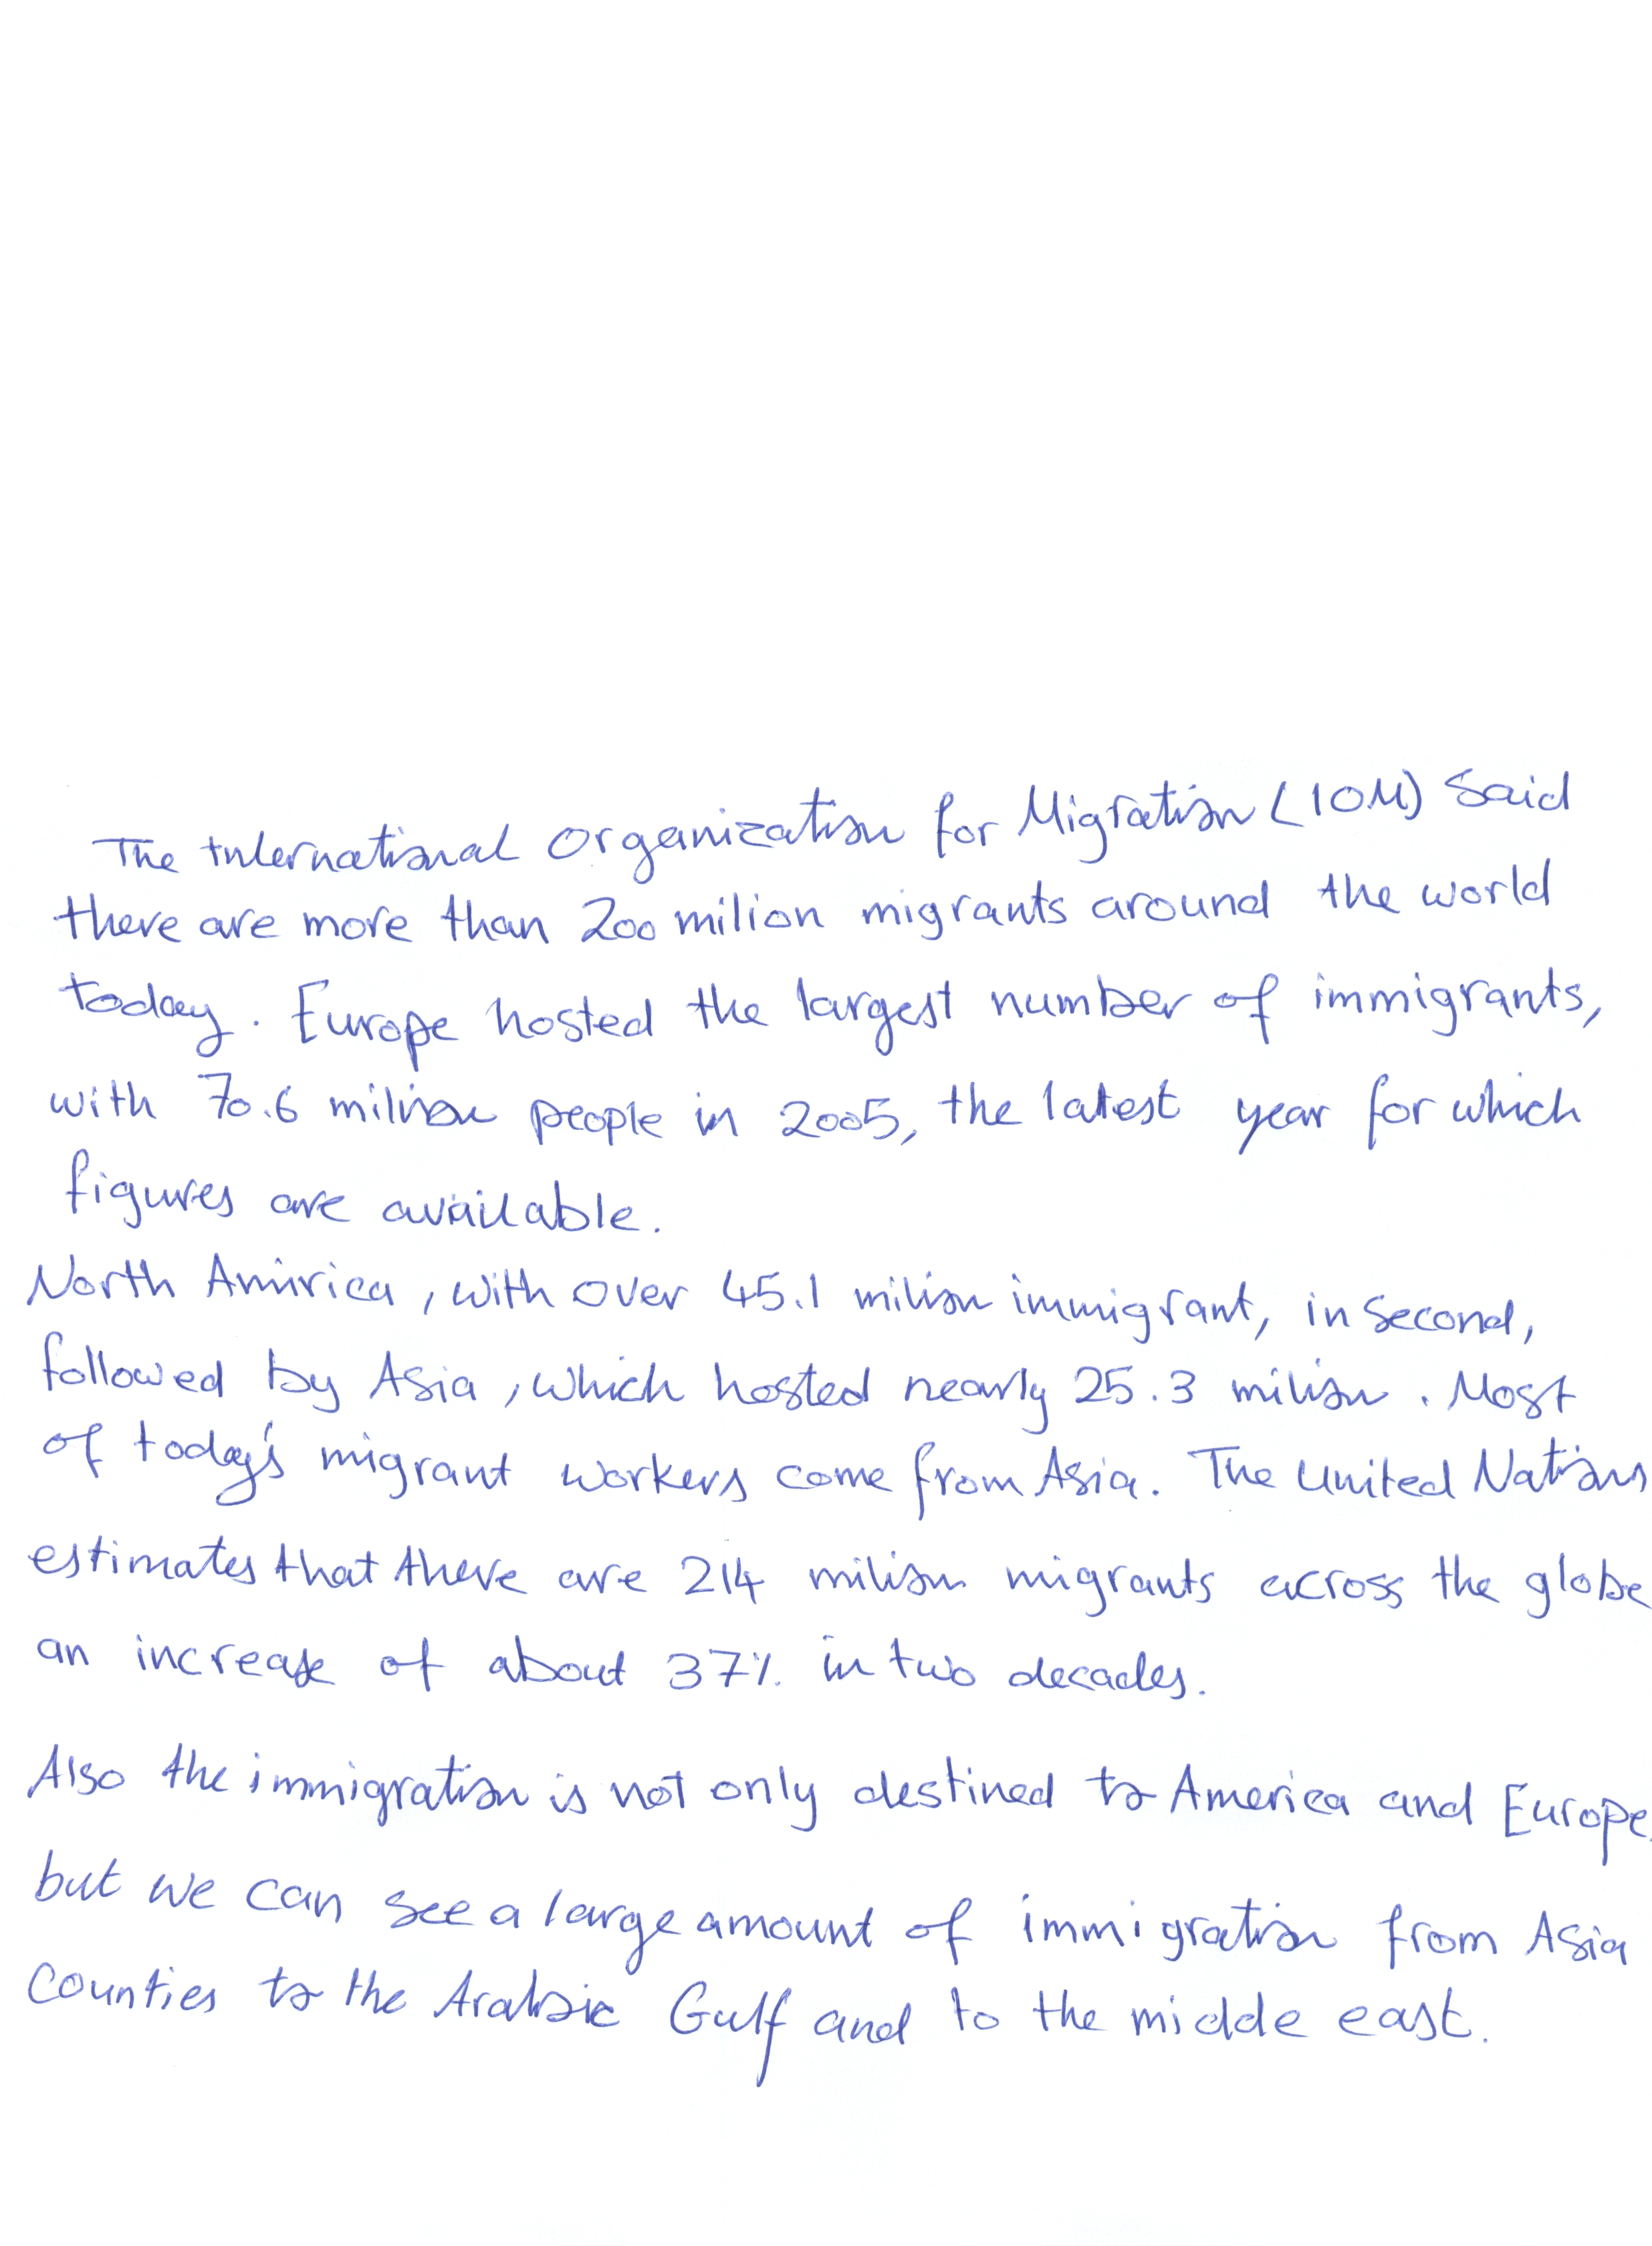 The International Organization for Migration (IOM) Said
there are more than 200 milion migrants around the world
today. Europe hosted the largest number of immigrants,
with 70.6 milion people in 2005, the latest year for which
figures are available.
North Amirica, with over 45.1 milion immigrant, in second,
followed by Asia, which hosted nearly 25.3 milion. Most
of today's migrant workers come from Asia. The United Nations
estimates that there are 214 milion migrants across the globe
an increase of about 37% in two decades.
Also the immigration is not only destined to America and Europe,
but we can see a large amount of immigration from Asia
Counties to the Arabic Gulf and to the midde east.